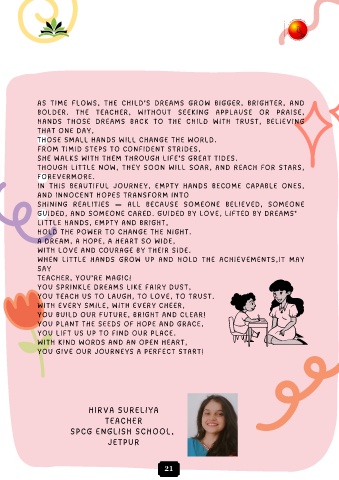 AS TIME FLOWS, THE CHILD'S DREAMS GROW BIGGER, BRIGHTER, AND
BOLDER. THE TEACHER, WITHOUT SEEKING APPLAUSE OR PRAISE,
HANDS THOSE DREAMS BACK TO THE CHILD WITH TRUST, BELIEVING
THAT ONE DAY,
THOSE SMALL HANDS WILL CHANGE THE WORLD.
FROM TIMID STEPS TO CONFIDENT STRIDES,
SHE WALKS WITH THEM THROUGH LIFE'S GREAT TIDES.
THOUGH LITTLE NOW, THEY SOON WILL SOAR, AND REACH FOR STARS,
FOREVERMORE.
IN THIS BEAUTIFUL JOURNEY, EMPTY HANDS BECOME CAPABLE ONES,
AND INNOCENT HOPES TRANSFORM INTO
SHINING REALITIES — ALL BECAUSE SOMEONE BELIEVED, SOMEONE
GUIDED, AND SOMEONE CARED. GUIDED BY LOVE, LIFTED BY DREAMS"
LITTLE HANDS, EMPTY AND BRIGHT,
HOLD THE POWER TO CHANGE THE NIGHT.
A DREAM, A HOPE, A HEART SO WIDE,
WITH LOVE AND COURAGE BY THEIR SIDE.
WHEN LITTLE HANDS GROW UP AND HOLD THE ACHIEVEMENTS,IT MAY
SAY
TEACHER, YOU'RE MAGIC!
YOU SPRINKLE DREAMS LIKE FAIRY DUST,
YOU TEACH US TO LAUGH, TO LOVE, TO TRUST.
WITH EVERY SMILE, WITH EVERY CHEER,
YOU BUILD OUR FUTURE, BRIGHT AND CLEAR!
YOU PLANT THE SEEDS OF HOPE AND GRACE,
YOU LIFT US UP TO FIND OUR PLACE.
WITH KIND WORDS AND AN OPEN HEART,
YOU GIVE OUR JOURNEYS A PERFECT START!
HIRVA SURELIYA
TEACHER
SPCG ENGLISH SCHOOL,
JETPUR
21